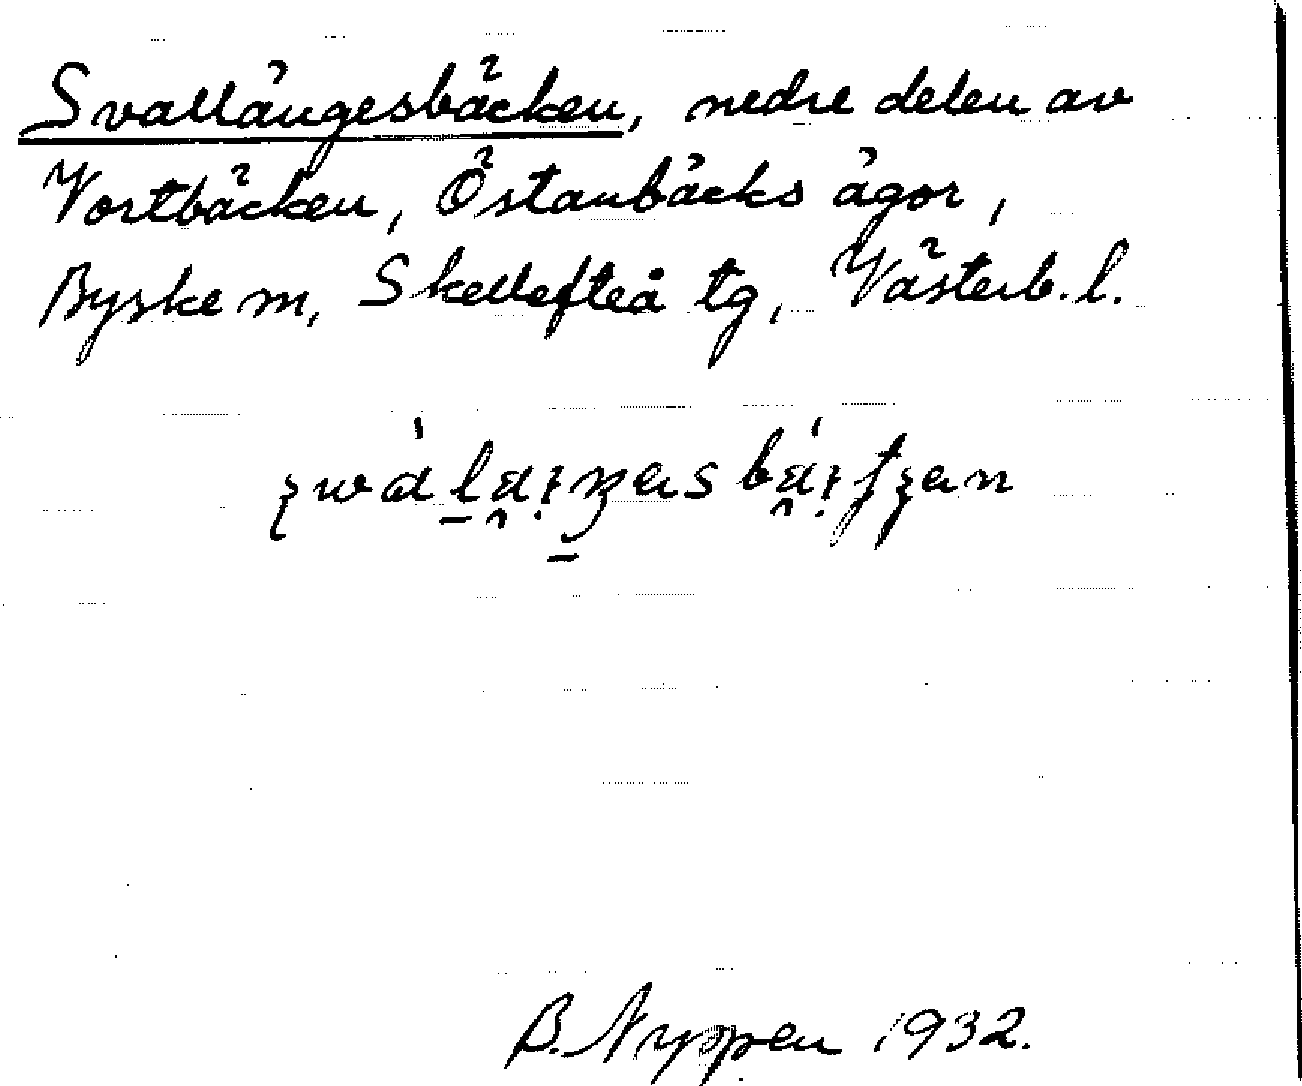 Svallängesbäcken, nedre delen av
Vortbäcken, Östanbäcks ägor,
Byske sn, Skellefteå tg, Västerb. l.
B. Nyppen 1932.